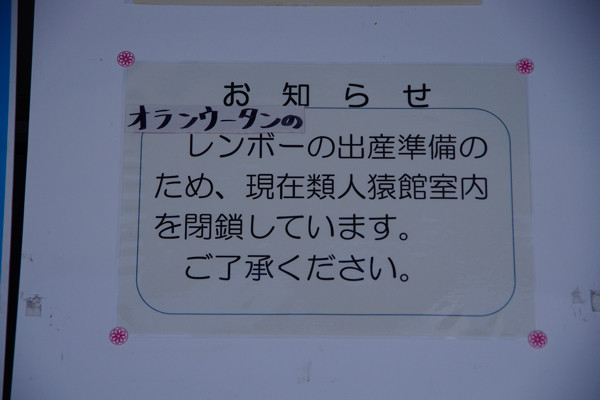 お知らせ
オランウータンの
レンボーの出産準備の
ため、現在類人猿館室内
を閉鎖しています。
ご了承ください。